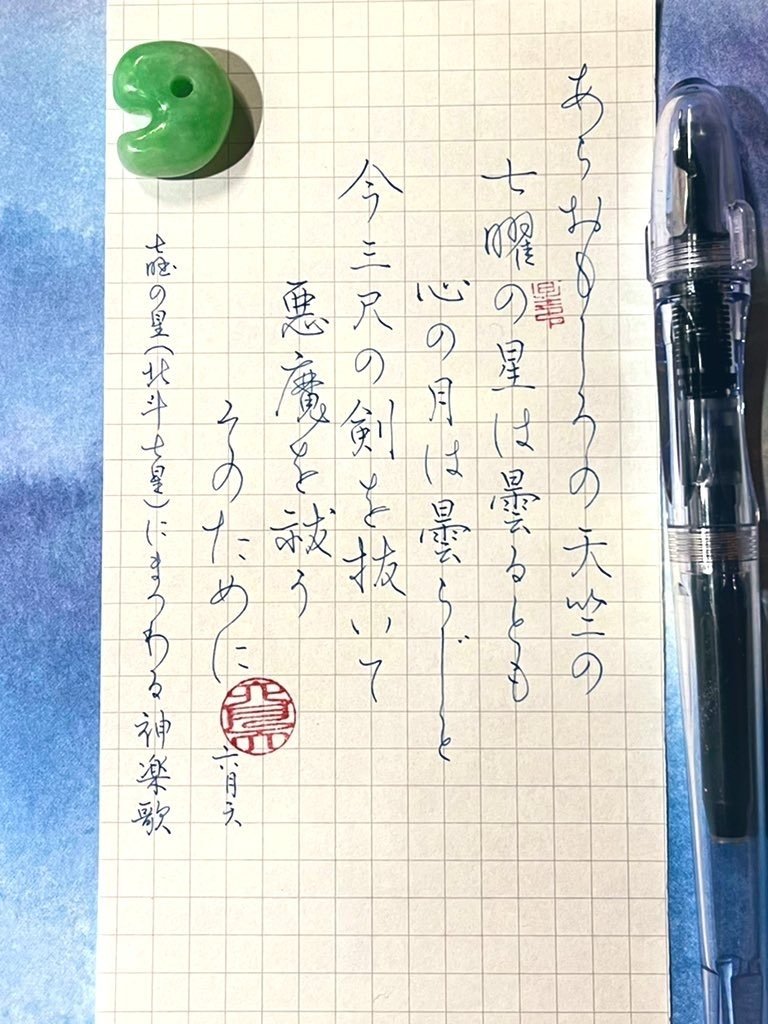 あらおもしろの天竺の
七曜の星は曇るとも
心の月は曇らじと
今三尺の剣を抜いて
悪魔を祓う
そのために
六月天
七曜の星(北斗七星)にまつわる神楽歌